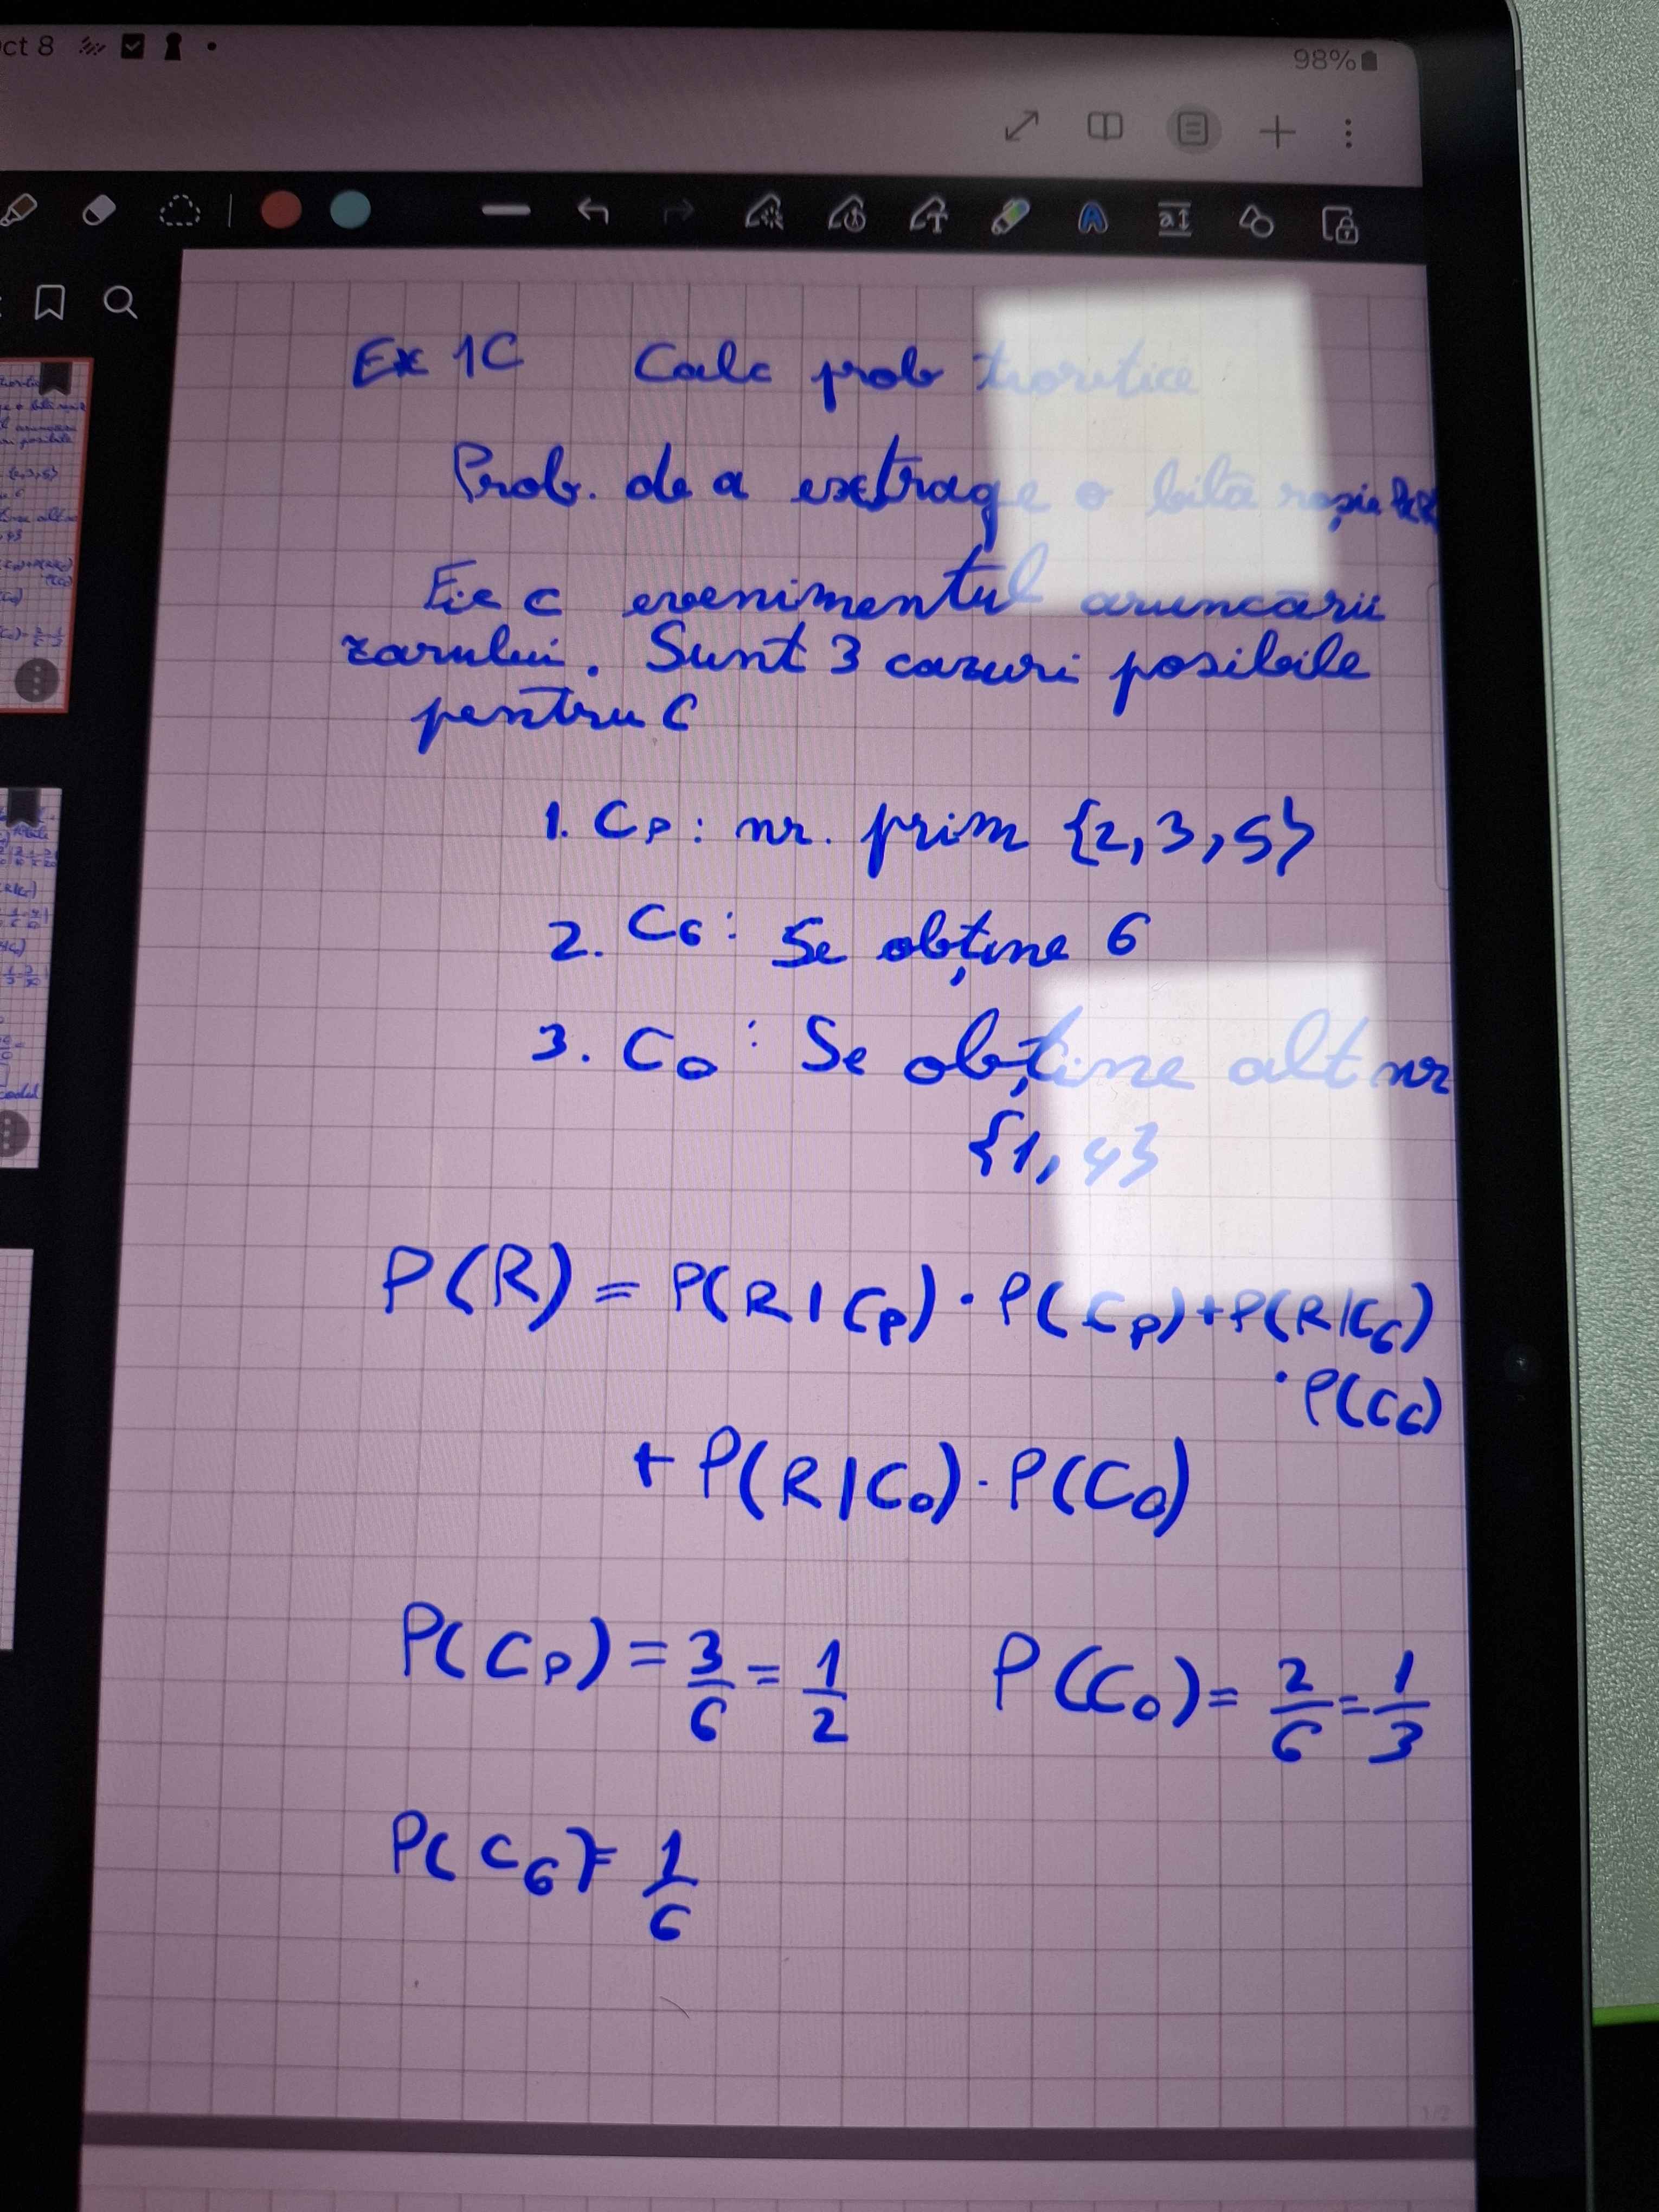 ct 8
98%
Ex 1C Calc prob teoretice
Prob. de a extrage o bilă roșie
Fie C evenimentul aruncării
zarului. Sunt 3 cazuri posibile
pentru C
1. Cp: nr. prim {2,3,5}
2. C6: Se obține 6
3. Co: Se obține alt nr
{1,4}
P(R) = P(R|Cp) · P(Cp) + P(R|C6)
· P(C6)
+ P(R|Co) · P(Co)
P(Cp) = 3/6 = 1/2 P(Co) = 2/6 = 1/3
P(C6) = 1/6
1/2